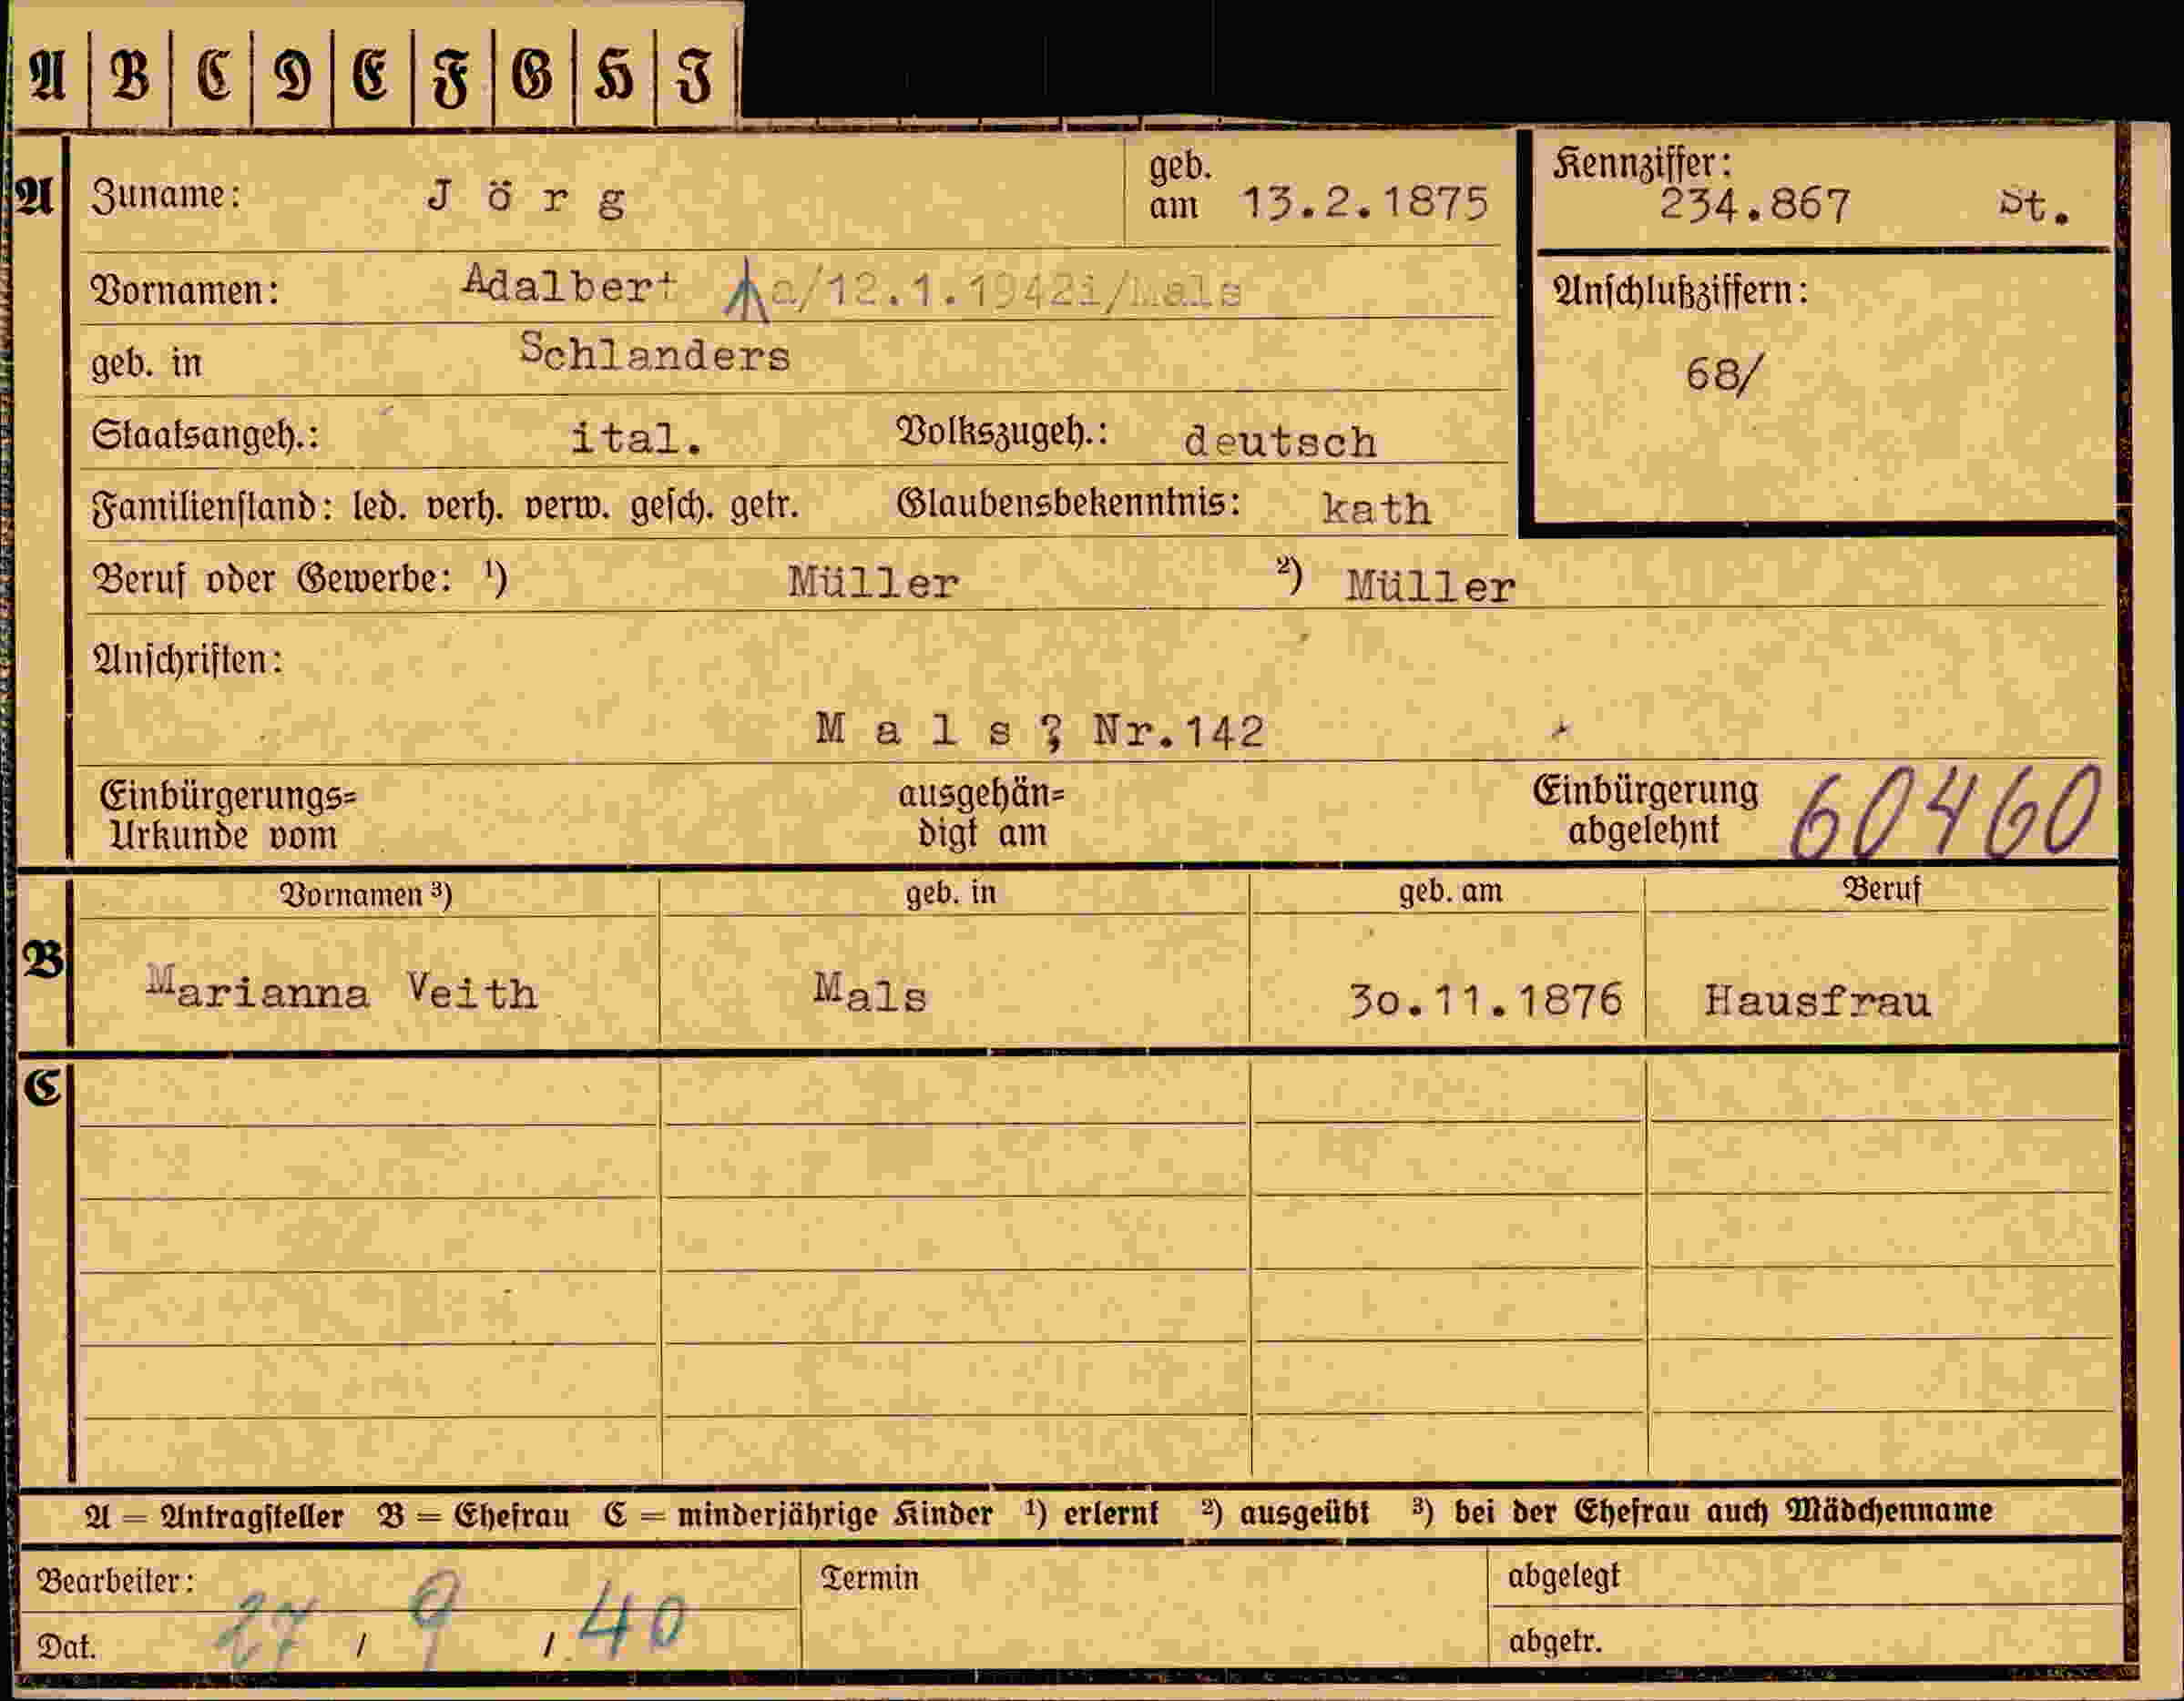 A B C D E F G H J
A Zuname: Jörg geb. am 13.2.1875 Kennziffer: 234.867 St.
Vornamen: Adalbert a/12.1.1942i/Mals Anschlußziffern:
geb. in Schlanders 68/
Staatsangeh.: ital. Volkszugeh.: deutsch
Familienstand: led. verh. verw. gesch. getr. Glaubensbekenntnis: kath
Beruf oder Gewerbe: ¹) Müller ²) Müller
Anschriften:
Mals, Nr.142
Einbürgerungs= ausgehän= Einbürgerung 60460
Urkunde vom digt am abgelehnt
Vornamen ³) geb. in geb. am Beruf
B Marianna Veith Mals 30.11.1876 Hausfrau
C
A = Antragsteller B = Ehefrau C = minderjährige Kinder ¹) erlernt ²) ausgeübt ³) bei der Ehefrau auch Mädchenname
Bearbeiter: Termin abgelegt
Dat. 27 / 9 / 40 abgetr.